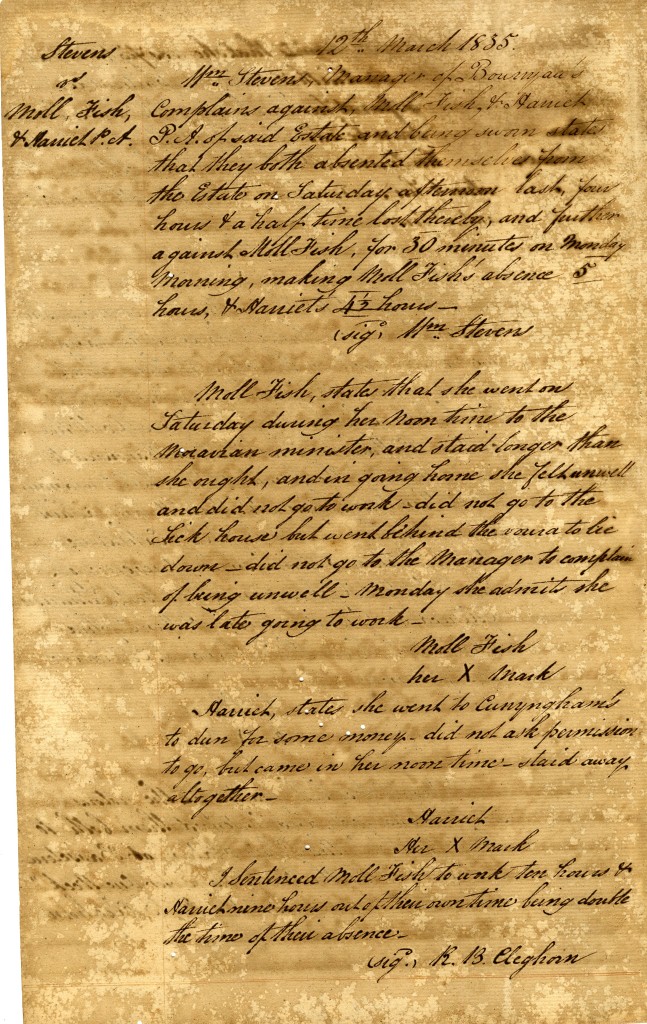 12th March 1835.
Stevens
vs
Moll, Fish,
& Harriet P. A.
Wm Stevens, Manager of
Complains against, Moll Fish, & Harriet
P. A. of said Estate and being sworn states
that they both absented themselves from
the Estate on Saturday afternoon last, four
hours & a half time lost thereby, and further
against Moll Fish, for 30 minutes on Monday
Morning, making Moll Fish's absence 5
hours, & Harriet's 4½ hours —
(sigd. Wm Stevens
Moll Fish, states that she went on
Saturday during her Noon time to the
Moravian minister, and staid longer than
she ought, and in going home she felt unwell
and did not go to work – did not go to the
Sick house but went behind the to lie
down – did not go to the Manager to complain
of being unwell – Monday she admits she
was late going to work –
Moll Fish
her X Mark
Harriet, states she went to Cunyngham's
to dun for some money – did not ask permission
to go, but came in her noon time – staid away
altogether –
Harriet
Her X Mark
I Sentenced Moll Fish to work ten hours &
Harriet nine hours out of their own time being double
the time of their absence –
(sigd. R. B. Cleghorn